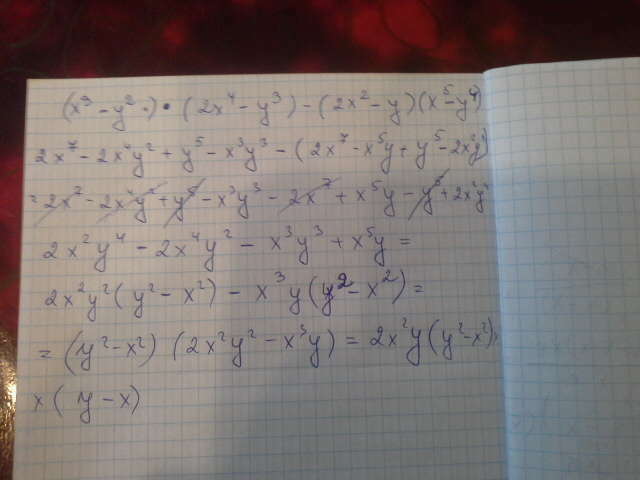 (x³ - y²) • (2x⁴ - y³) - (2x² - y)(x⁵ - y⁴)
2x⁷ - 2x⁴y² + y⁵ - x³y³ - (2x⁷ - x⁵y + y⁵ - 2x²y⁴)
= 2x⁷ - 2x⁴y² + y⁵ - x³y³ - 2x⁷ + x⁵y - y⁵ + 2x²y⁴
2x²y⁴ - 2x⁴y² - x³y³ + x⁵y =
2x²y²(y² - x²) - x³y(y² - x²) =
= (y² - x²) (2x²y² - x³y) = 2x²y(y² - x²)
x(y - x)